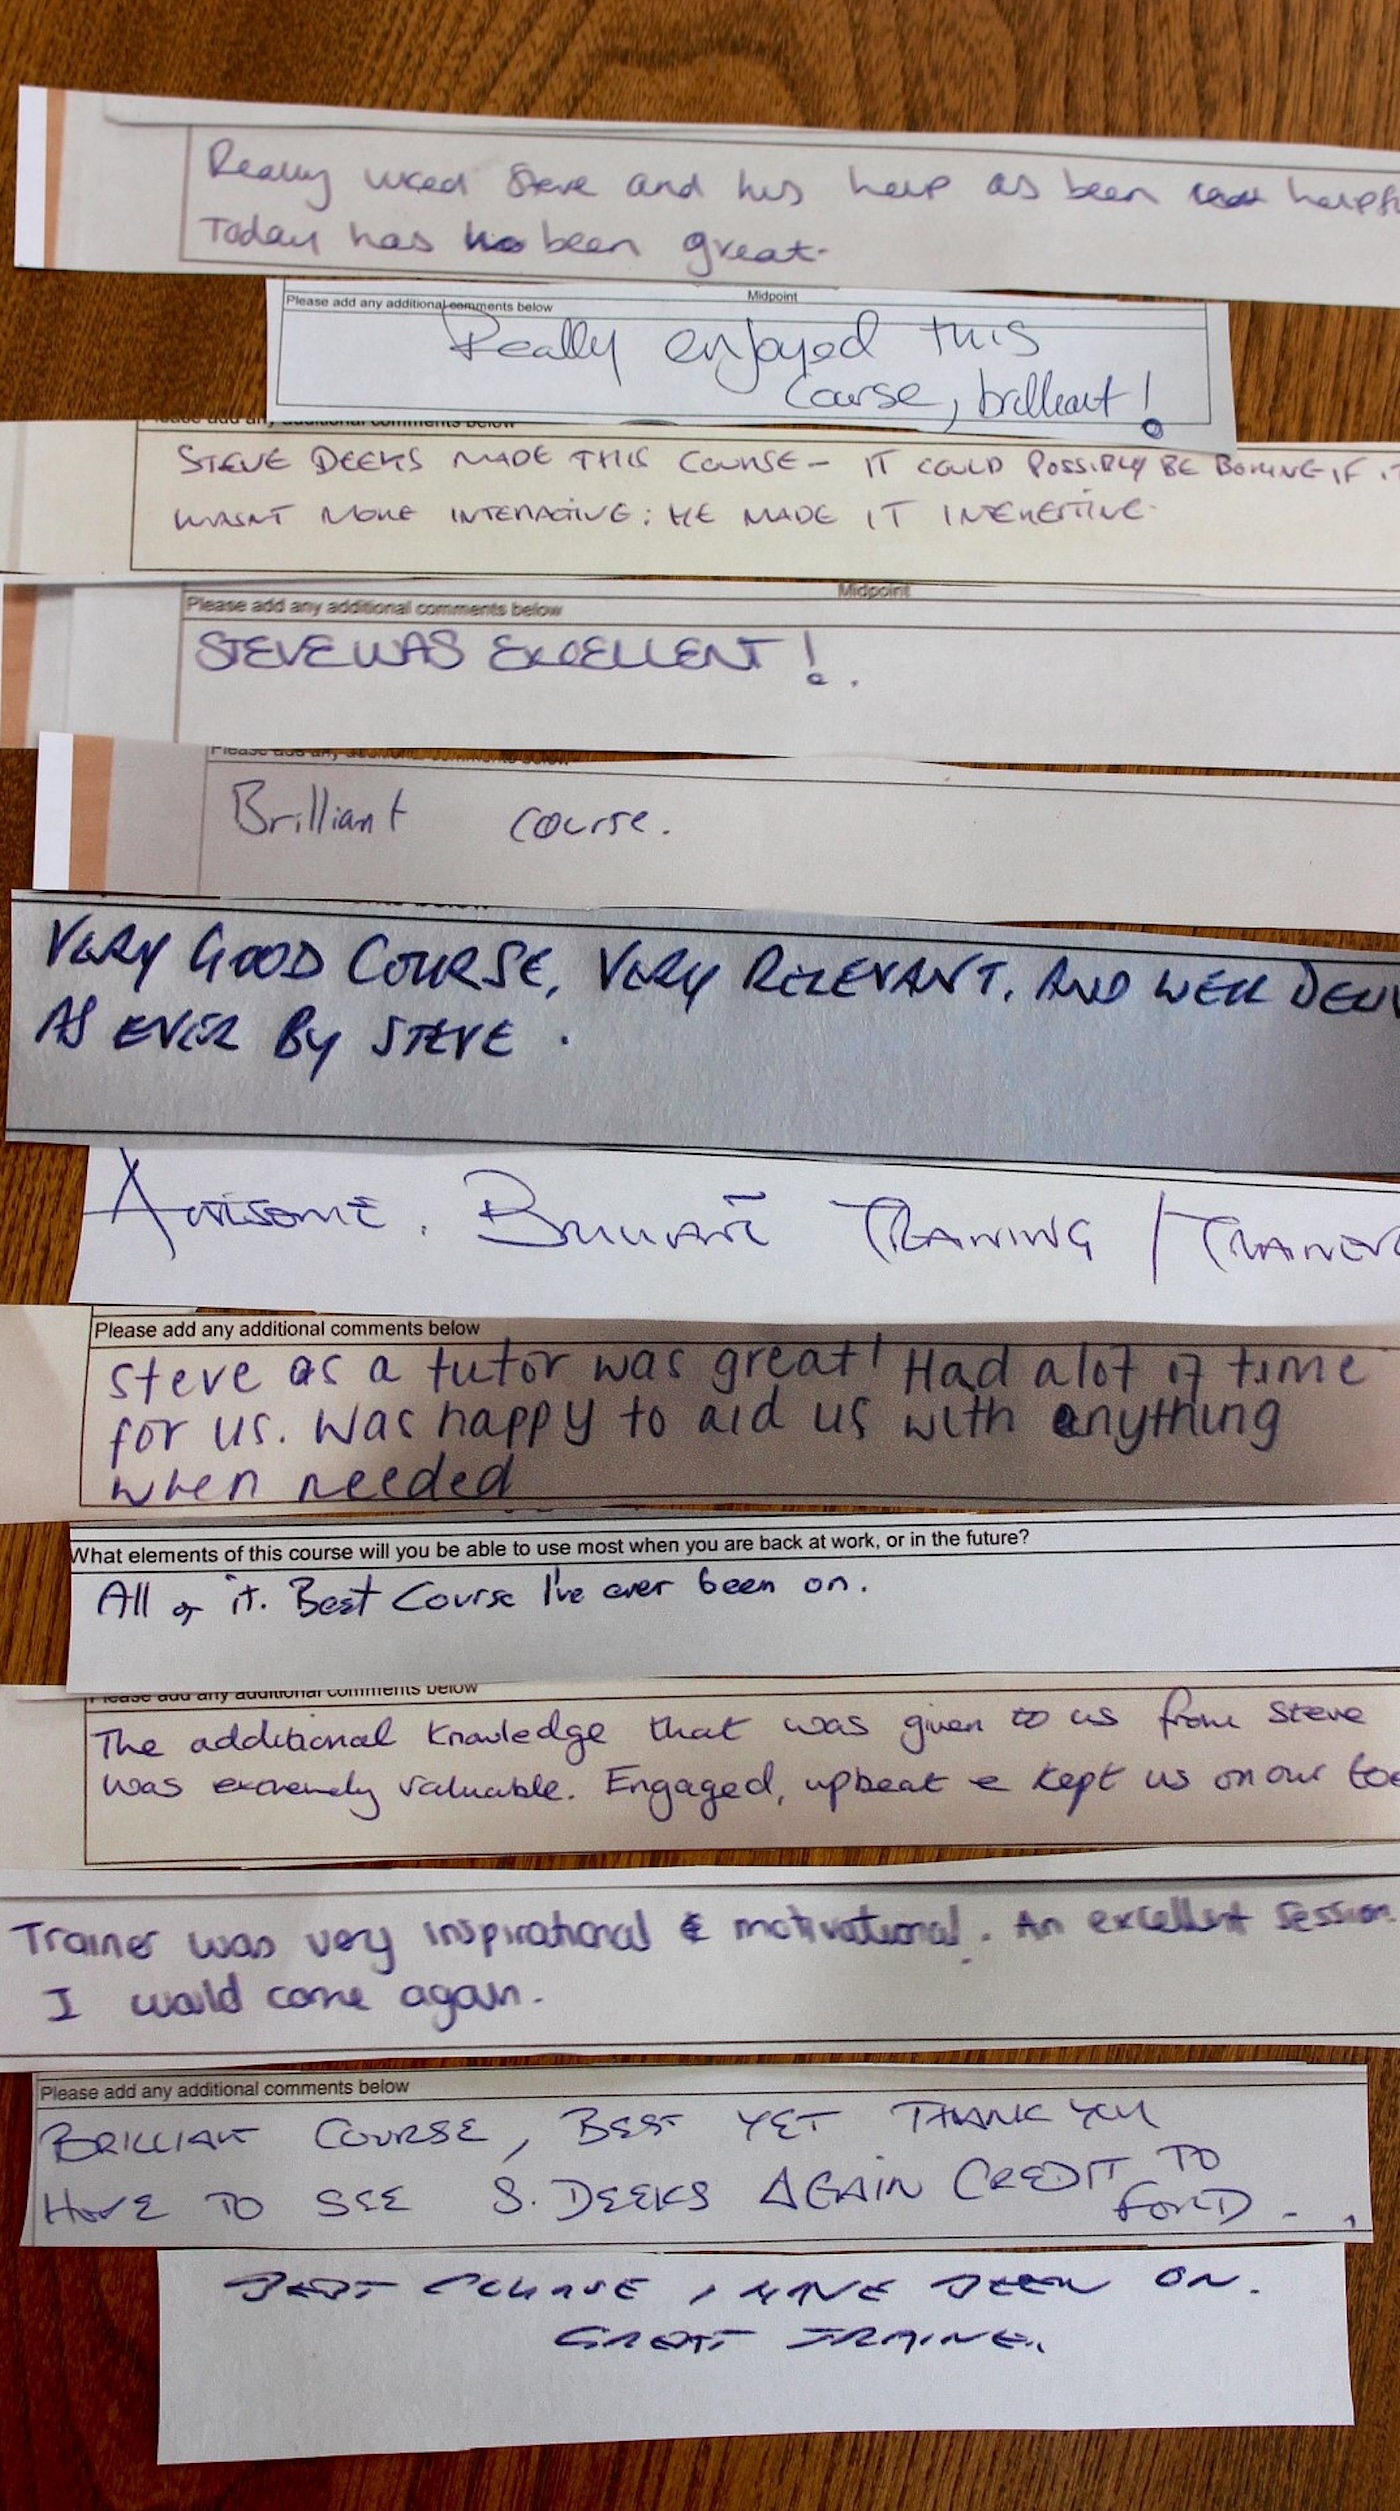 Really liked Steve and his help as been helpf
Today has been great.
Please add any additional comments below
Midpoint
Really enjoyed this
course, brilliant!
Please add any additional comments below
STEVE DEEKS MADE THIS COURSE - IT COULD POSSIBLY BE BORING IF IT
WASNT MORE INTERACTIVE: HE MADE IT
Midpoint
Please add any additional comments below
STEVE WAS EXCELLENT!.
Please add any additional comments below
Brilliant course.
VERY GOOD COURSE, VERY RELEVANT, AND WELL DELIV
AS EVER BY STEVE.
AWESOME. BRILLIANT TRAINING / TRAINER
Please add any additional comments below
Steve as a tutor was great! Had alot of time
for us. Was happy to aid us with anything
when needed
What elements of this course will you be able to use most when you are back at work, or in the future?
All of it. Best Course I've ever been on.
Please add any additional comments below
The additional knowledge that was given to us from Steve
was extremely valuable. Engaged, upbeat & kept us on our toe
Trainer was very inspirational & motivational. An excellent session.
I would come again.
Please add any additional comments below
BRILLIANT COURSE, BEST YET THANK YOU
HOPE TO SEE S. DEEKS AGAIN CREDIT TO
FORD..
BEST COURSE I HAVE BEEN ON.
GREAT TRAINER.